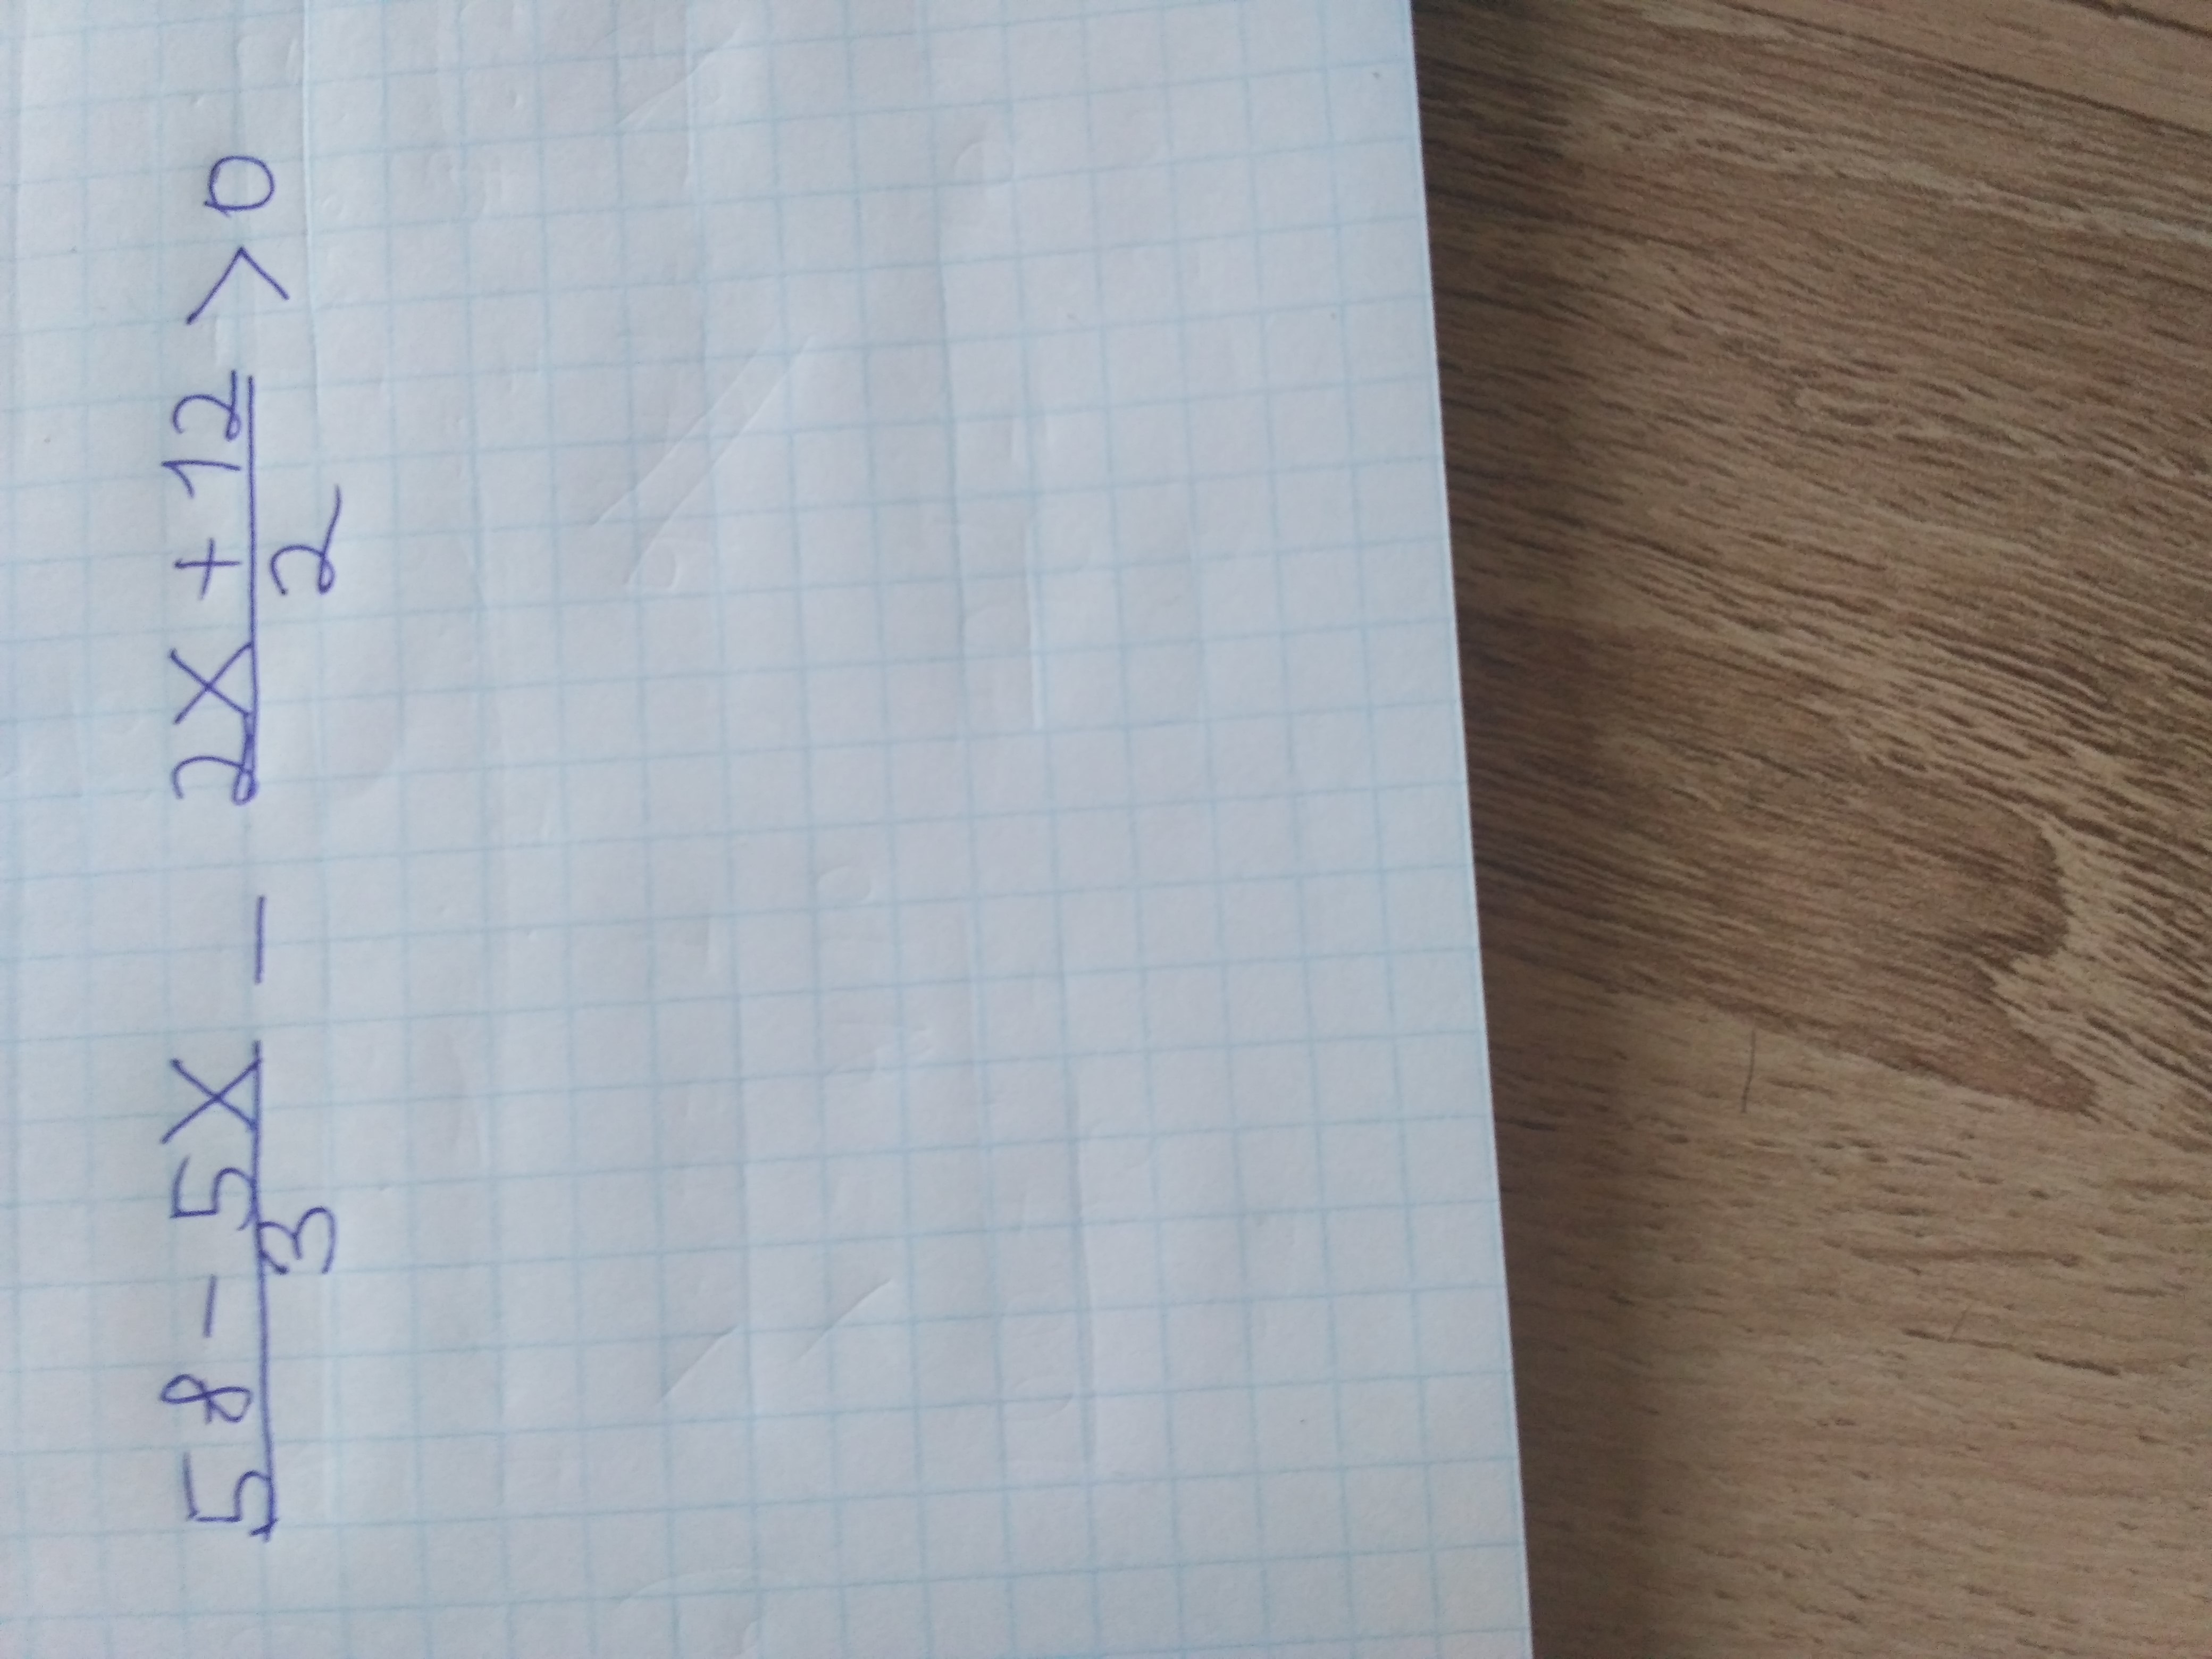 58 - 5x / 3 - 2x + 12 / 2 > 0